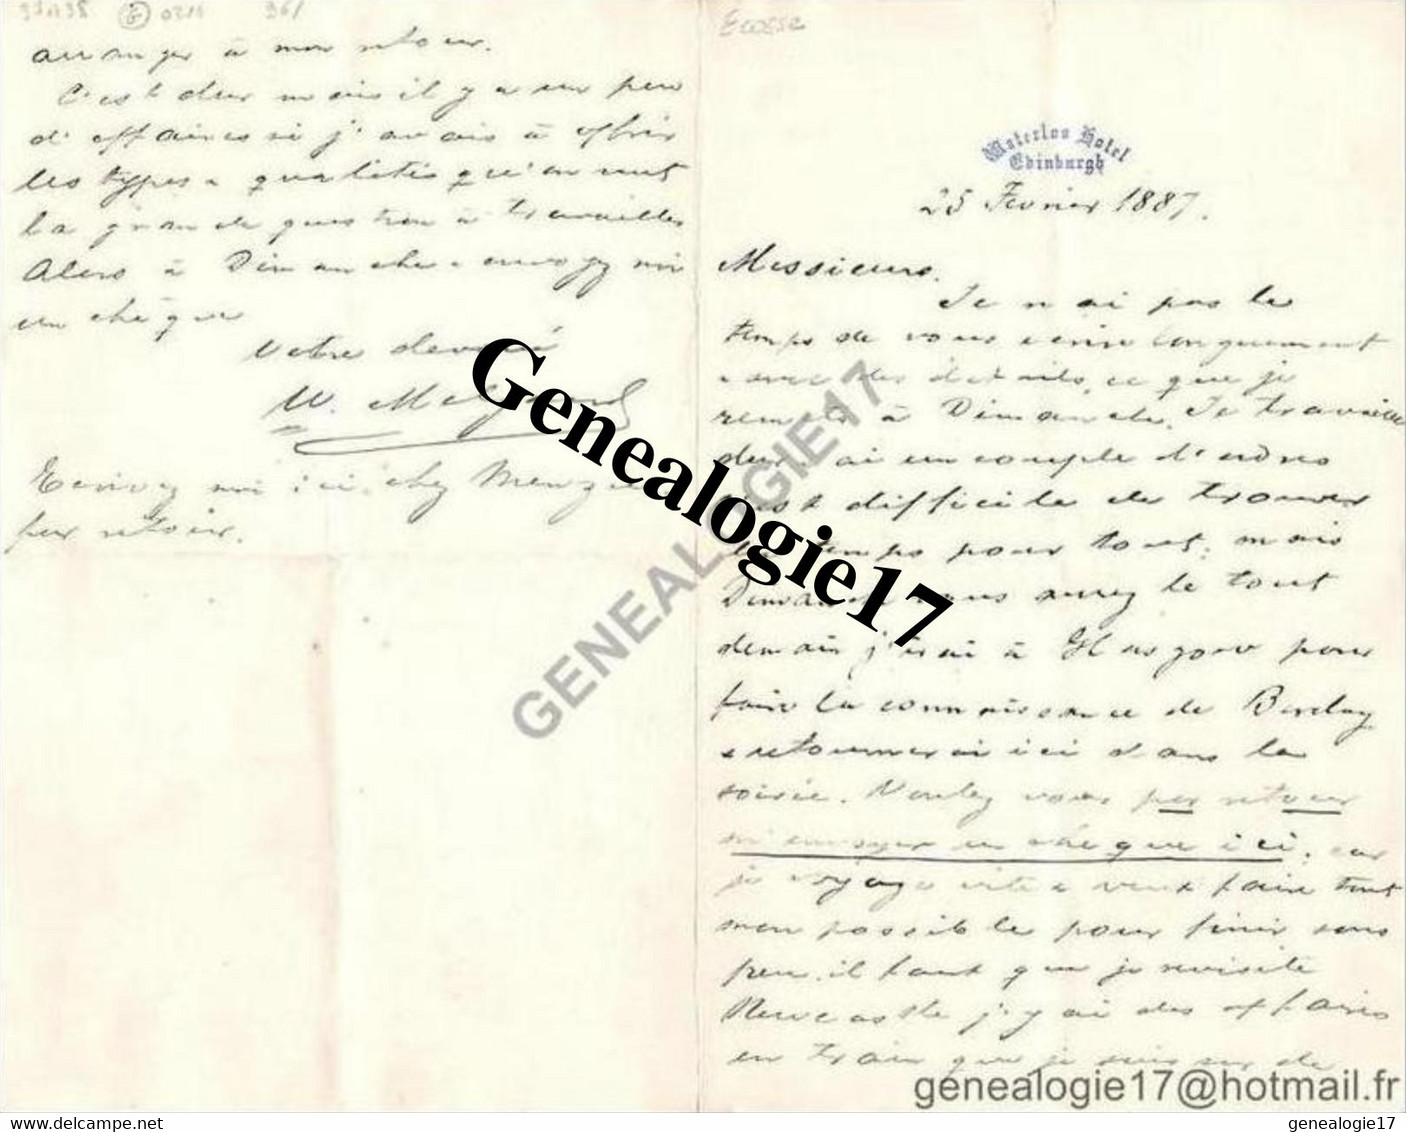 Ecosse
Waterloo Hotel
Edinburgh
25 Fevrier 1887.
Messieurs.
Je n'ai pas le
temps de vous ecrire longuement
avec des details, ce que je
remets à Dimanche. Je travaille
dur. J'ai un couple d'ordres
c'est difficile de trouver
le temps pour tout, mais
Dimanche vous aurez le tout
demain j'irai à Glasgow pour
faire la connaissance de Barclay
& retournerai ici dans la
soirée. Voulez vous par retour
m'envoyer un chèque ici, car
je voyage vite & veux faire tout
mon possible pour finir sous
peu. il faut que je revisite
Newcastle j'y ai des affaires
en train que je suis sur de
arranger à mon retour.
C'est dur mais il y a un peu
d'affaires si j'avais à offrir
les types & qualités qu'on veut
la grande question à travailler
Alors à Dimanche & envoyez moi
un chèque
Votre devoué
W.
Ecrivez moi ici, chez
par retour.
Genealogie17
GENEALOGIE17
genealogie17@hotmail.fr
www.delcampe.net
genealogie17